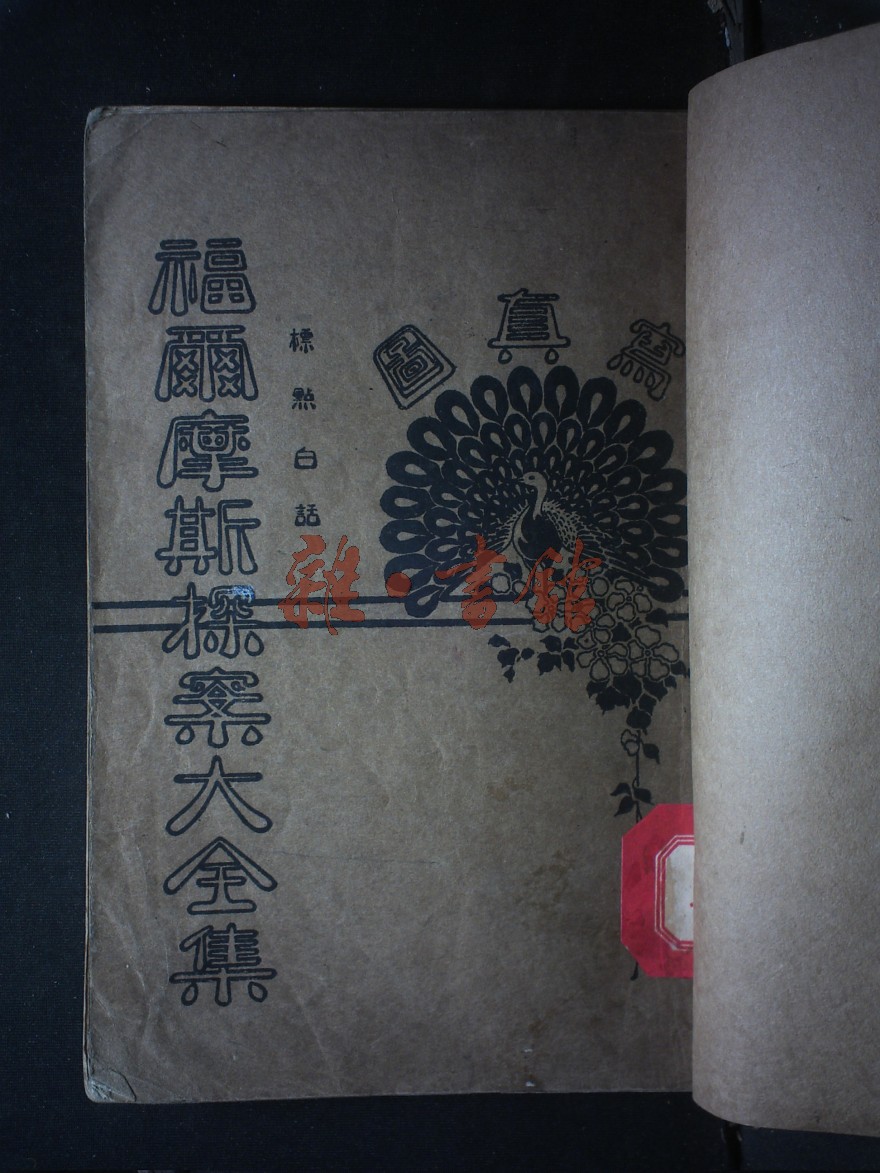 寫真圖
標點白話
福爾摩斯探案大全集
雜·書館